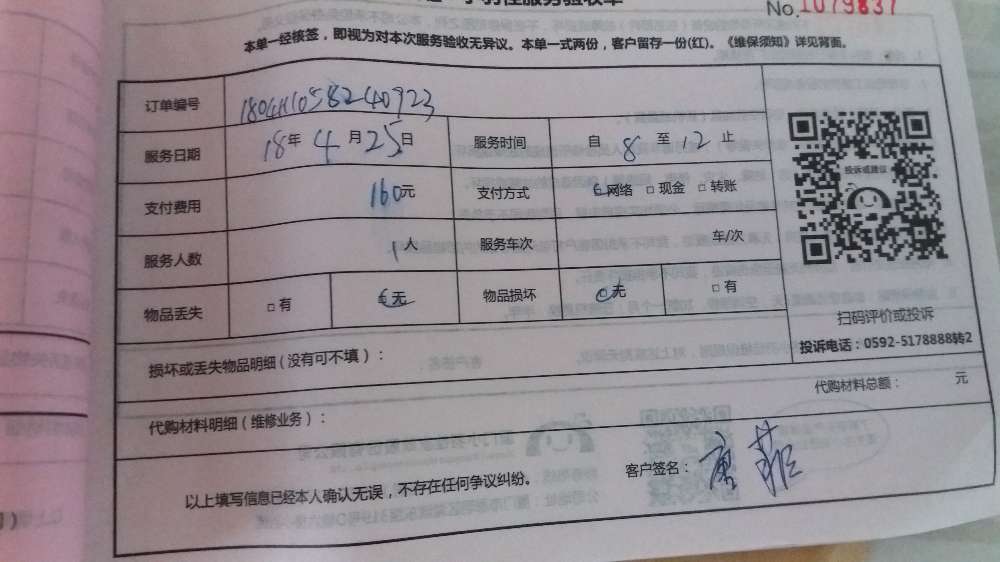 服务验收单
No.1079837
本单一经核签，即视为对本次服务验收无异议。本单一式两份，客户留存一份(红)。《维保须知》详见背面。
订单编号 180411058240923
服务日期 18年 4月25日 服务时间 自 8 至 12 止
支付费用 160元 支付方式 网络 □ 现金 □ 转账
服务人数 1人 服务车次 车/次
物品丢失 □ 有 无 物品损坏 无 □ 有
投诉或建议
扫码评价或投诉
投诉电话：0592-5178888转2
损坏或丢失物品明细(没有可不填)：
代购材料总额： 元
代购材料明细(维修业务)：
以上填写信息已经本人确认无误，不存在任何争议纠纷。
客户签名： 唐菲